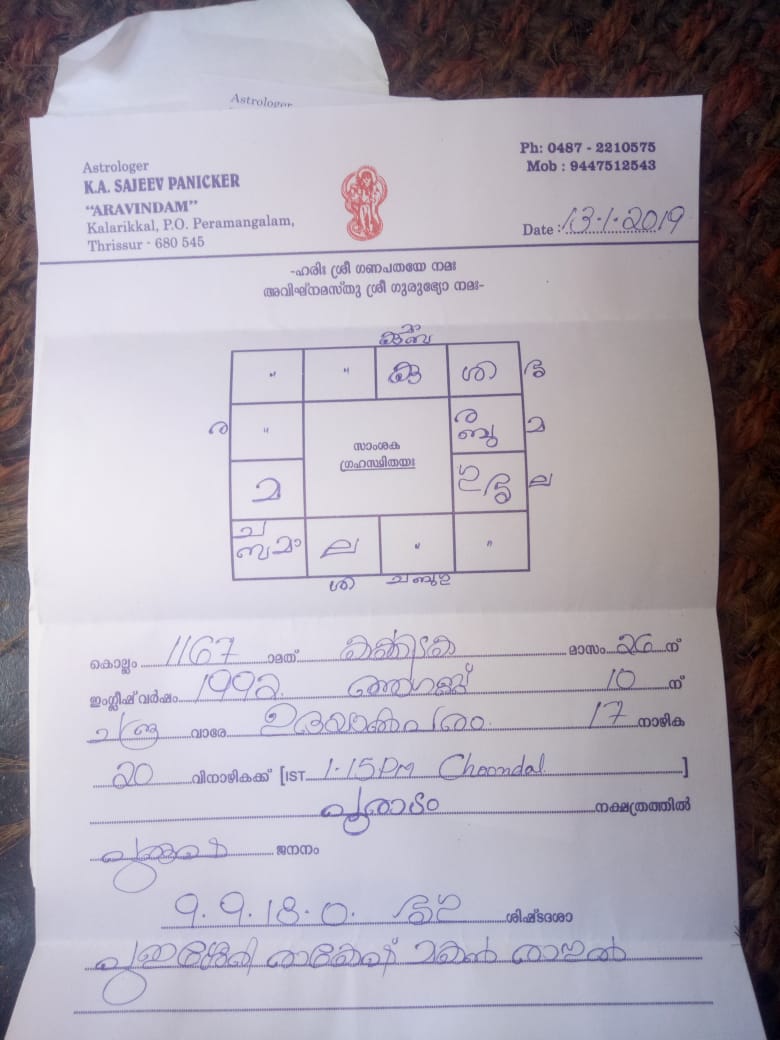 Astrologer
Astrologer
K.A. SAJEEV PANICKER
"ARAVINDAM"
Kalarikkal, P.O. Peramangalam,
Thrissur - 680 545
Ph: 0487 - 2210575
Mob : 9447512543
Date : 13·1·2019
-ഹരിഃ ശ്രീ ഗണപതയേ നമഃ
അവിഘ്നമസ്തു ശ്രീ ഗുരുഭ്യോ നമഃ-
" " കു ശി
ര " ര ബു മ
സാംശക
ഗ്രഹസ്ഥിതയഃ
മ ല
ച മാ ല " "
ശി
കൊല്ലം 1167 ാമത് കർക്കിടക മാസം 26 ന്
ഇംഗ്ലീഷ് വർഷം 1992 ആഗസ്റ്റ് 10 ന്
ചന്ദ്ര വാരേ ഉദയാൽപരം 17 നാഴിക
20 വിനാഴികക്ക് [IST 1·15 PM Choondal ]
പൂരാടം നക്ഷത്രത്തിൽ
ജനനം
9·9·18·0· ശിഷ്ടദശാ
മകൻ